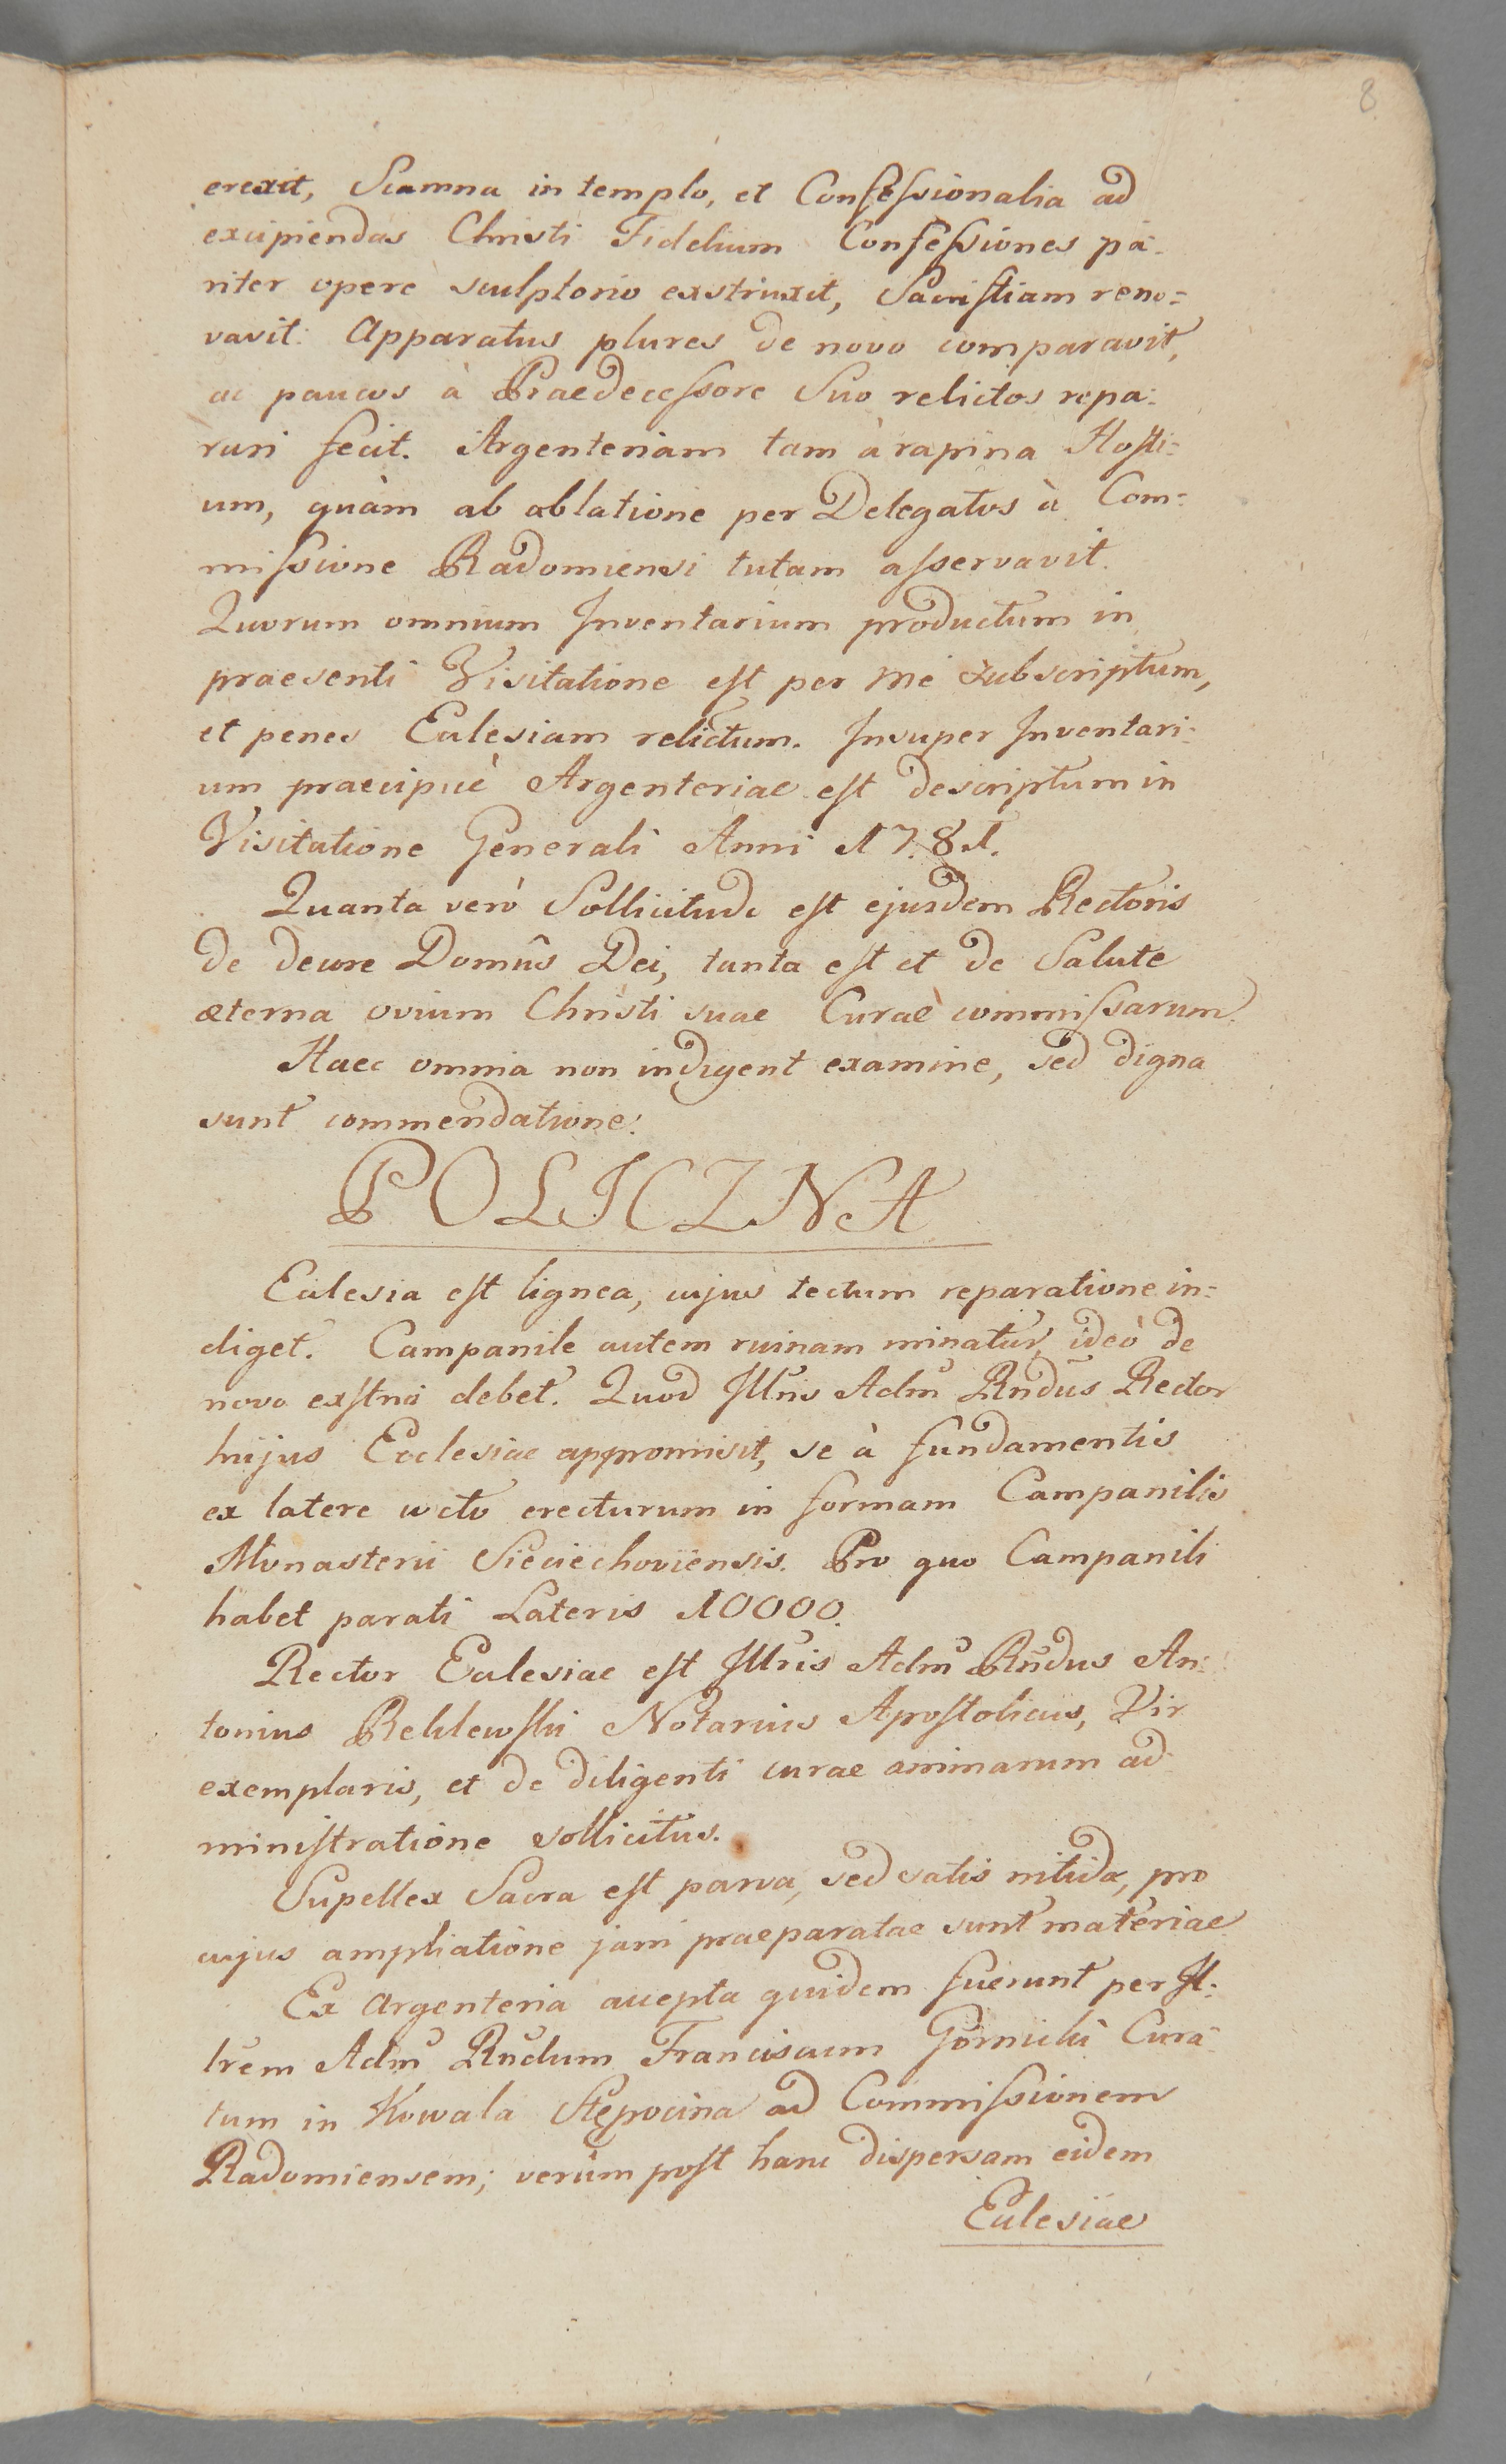 8
erexit, Scamna in templo, et Confessionalia ad
excipiendas Christi Fidelium Confessiones pa-
riter opere sculptorio exstruxit, Sacristiam reno=
vavit. Apparatus plures de novo comparavit,
ac paucos à Praedecessore Suo relictos repa=
rari fecit. Argenteriam tam à rapina Hosti=
um, quàm ab ablatione per Delegatos à Com=
missione Radomiensi tutam asservavit.
Quorum omnium Inventarium productum in
praesenti Visitatione est per me subscriptum,
et penes Ecclesiam relictum. Insuper Inventari=
um praecipuè Argenteriae est descriptum in
Visitatione Generali Anni 1781.
Quanta verò Sollicitudo est ejusdem Rectoris
de decore Domûs Dei, tanta est et de Salute
æterna ovium Christi suae Curae commissarum.
Haec omnia non indigent examine, sed digna
sunt commendatione.
POLICZNA
Ecclesia est lignea, cujus tectum reparatione in=
diget. Campanile autem ruinam minatur, ideò de
novo exstrui debet. Quod Illris Adm Rndus Rector
hujus Ecclesiae appromisit, se à fundamentis
ex latere cocto erecturum in formam Campanilis
Monasterii Sieciechoviensis. Pro quo Campanili
habet parati Lateris 10000.
Rector Ecclesiae est Illris Adm Rndus An=
tonius Reklewski Notarius Apostolicus, Vir
exemplaris, et de diligenti curae animarum ad
ministratione sollicitus.
Supellex Sacra est parva, sed satis nitida, pro
cujus ampliatione jam praeparatae sunt materiae.
Ex Argenteria accepta quidem fuerunt per Il=
lrem Adm Rndum Franciscum Gornicki Cura-
tum in Kowala Stępocina ad Commissionem
Radomiensem; verùm post hanc dispersam eidem
Ecclesiae